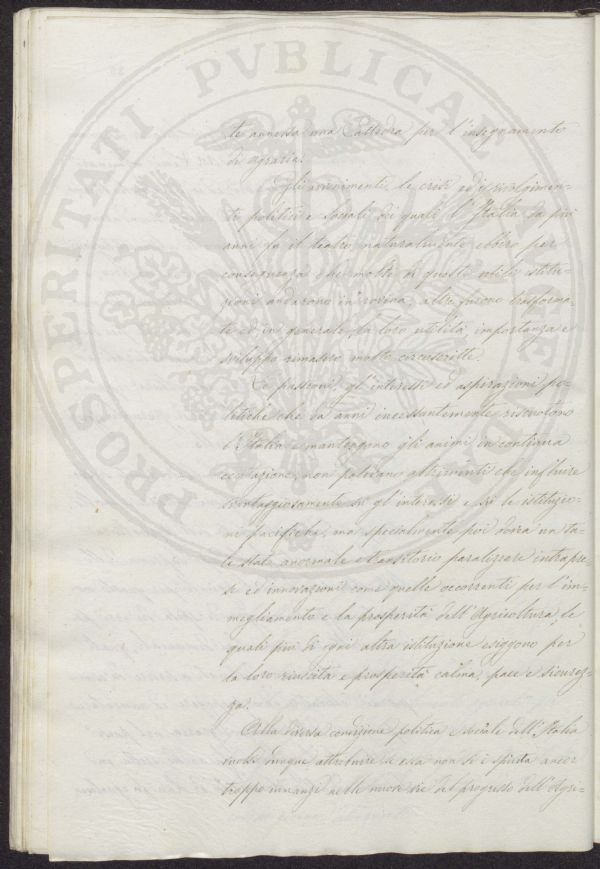 PROSPERITATI PVBLICAE AVGENDAE
te annessa una Cattedra per l'insegnamento
di agraria.
Gli avvenimenti, le crisi ed i rivolgimen-
ti politici e sociali dei quali l'Italia da più
anni fu il teatro, naturalmente ebbero per
conseguenza che molte di quelle utili istitu-
zioni andarono in rovina, altre furono trasforma-
te ed in generale la loro utilità importanza e
sviluppo rimasero molto circoscritte.
Le passioni, gl'interessi ed aspirazioni po-
litiche che da anni incessantemente riscuotono
l'Italia e mantengono gli animi in continua
non potevano altrimenti che influire
svantaggiosamente su gl'interessi e su le istituzio-
ni pacifiche, ma specialmente poi dovea un ta-
le stato anormale e transitorio paralizzare intrapre-
se ed innovazioni come quelle occorrenti per l'im-
megliamento e la prosperità dell'Agricoltura, le
quali più di ogni altra istituzione esiggono per
la loro riuscita e prosperità calma, pace e sicurez-
za.
Alla diversa condizione politica e sociale dell'Italia
vuolsi dunque attribuire se essa non si è spinta ancor
troppo innanzi nelle nuove vie del progresso dell'Agri-